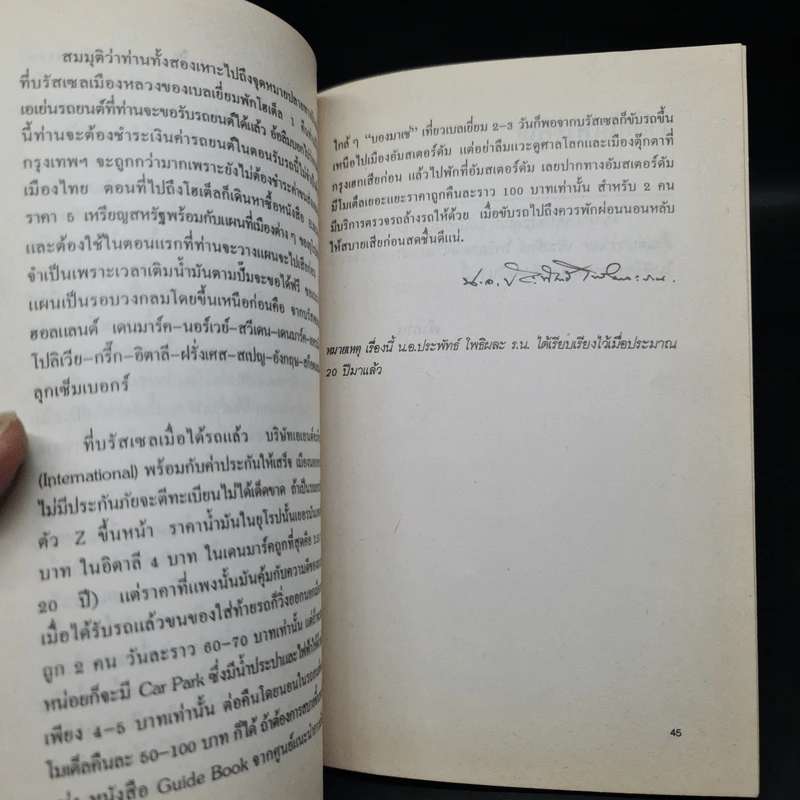 สมมุติว่าท่านทั้งสองเหาะไปถึงจุดหมายปลายทาง
ที่บรัสเซลเมืองหลวงของเบลเยี่ยมพักโฮเต็ล 1 คืน
เอเย่นรถยนต์ที่ท่านจะขอรับรถยนต์ได้แล้ว อ้อลืมบอกไป
นี้ท่านจะต้องชำระเงินค่ารถยนต์ในตอนรับรถนี้
กรุงเทพฯ จะถูกกว่ามากเพราะยังไม่ต้องชำระค่า
เมืองไทย ตอนที่ไปถึงโฮเต็ลก็เดินหาซื้อหนังสือ
ราคา 5 เหรียญสหรัฐพร้อมกับแผนที่เมืองต่าง ๆ
และต้องใช้ในตอนแรกที่ท่านจะวางแผนจะไป
จำเป็นเพราะเวลาเติมน้ำมันตามปั๊มจะขอได้ฟรี
แผนเป็นรอบวงกลมโดยขึ้นเหนือก่อนคือ จาก
ฮอลแลนด์ เดนมาร์ค-นอร์เวย์-สวีเดน-เดนมาร์ค-
โปลิเวีย-กรี๊ก-อิตาลี-ฝรั่งเศส-สเปญ-อังกฤษ-
ลุกเซ็มเบอกร์
ที่บรัสเซลเมื่อได้รถแล้ว บริษัทเอเยนต์
(International) พร้อมกับค่าประกันให้เสร็จ
ไม่มีประกันภัยจะตีทะเบียนไม่ได้เด็ดขาด ถ้าเป็น
ตัว Z ขึ้นหน้า ราคาน้ำมันในยุโรปนั้น
บาท ในอิตาลี 4 บาท ในเดนมาร์คถูกที่สุดคือ
20 ปี) แต่ราคาที่แพงนั้นมันคุ้มกับความดี
เมื่อได้รับรถแล้วขนของใส่ท้ายรถก็วิ่งออก
ถูก 2 คน วันละราว 60-70 บาทเท่านั้น
หน่อยก็จะมี Car Park ซึ่งมีน้ำประปาและไฟฟ้า
เพียง 4-5 บาทเท่านั้น ต่อคืนโดยนอนในรถ
โมเต็ลคืนละ 50-100 บาท ก็ได้ ถ้าต้องการ
หนังสือ Guide Book จากศูนย์แนะนำ
ใกล้ ๆ "บองมาเช่" เที่ยวเบลเยี่ยม 2-3 วันก็พอจากบรัสเซลก็ขับรถขึ้น
เหนือไปเมืองอัมสเตอร์ดัม แต่อย่าลืมแวะดูศาลโลกและเมืองตุ๊กตาที่
กรุงเฮกเสียก่อน แล้วไปพักที่อัมสเตอร์ดัม เลยปากทางอัมสเตอร์ดัม
มีโมเต็ลเยอะแยะราคาถูกคืนละราว 100 บาทเท่านั้น สำหรับ 2 คน
มีบริการตรวจรถล้างรถให้ด้วย เมื่อขับรถไปถึงควรพักผ่อนนอนหลับ
ให้สบายเสียก่อนสดชื่นดีแน่.
หมายเหตุ เรื่องนี้ น.อ.ประพัทธ์ โพธิผละ ร.น. ได้เรียบเรียงไว้เมื่อประมาณ
20 ปีมาแล้ว
45